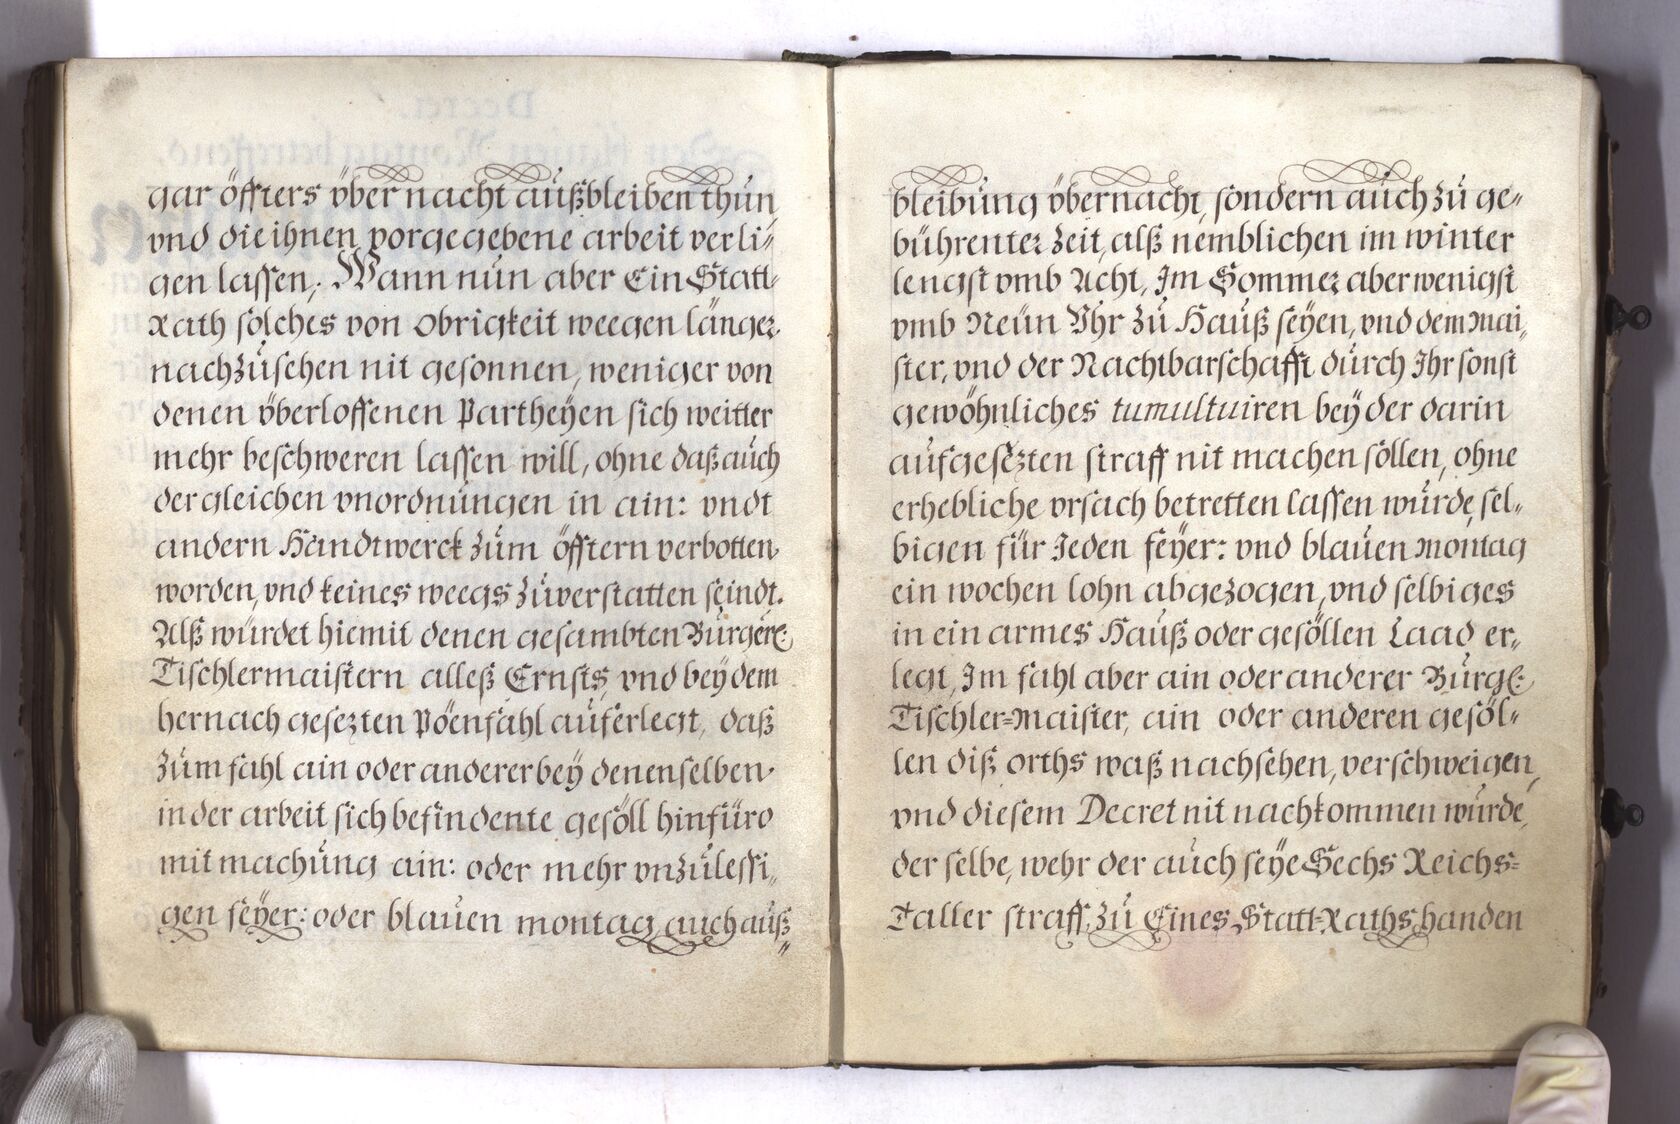 gar öffters yber nacht außbleiben thun
vnd die ihnen vorgegebene arbeit verli=
gen lassen, Wann nun aber Ein Statt=
Rath solches von Obrigkeit weegen länger
nachzusehen nit gesonnen, weniger von
denen yberloffenen Partheyen sich weitter
mehr beschweren lassen will, ohne daß auch
dergleichen vnordnungen in ain: vndt
andern Handtwerck zum öfftern verbotten
worden, vnd keines weegs zuverstatten seindt.
Alß würdet hiemit denen gesambten Burgerl:
Tischlermaistern alleß Ernsts, vnd bey dem
hernach gesezten Pöenfahl auferlegt, daß
zum fahl ain oder anderer bey denenselben
in der arbeit sich befindente gesöll hinfüro
mit machung ain: oder mehr vnzulessi=
gen feyer: oder blauen montag, auch auß=
bleibung ybernacht, sondern auch zu ge=
bührenter zeit, alß nemblichen im winter
lengst vmb Acht, Im Sommer aber wenigst
vmb Neun Vhr zu Hauß seyen, vnd dem mai=
ster, vnd der Nachtbarschafft durch Ihr sonst
gewöhnliches tumultuiren bey der darin
aufgesezten straff nit machen söllen, ohne
erhebliche vrsach betretten lassen wurde, sel=
bigen für Jeden feyer: vnd blauen montag
ein wochen lohn abgezogen, vnd selbiges
in ein armes Hauß oder gesöllen Laad er=
legt, Im fahl aber ain oder anderer Burgl:
Tischler=Maister, ain oder anderen gesöl=
len diß orths waß nachsehen, verschweigen,
vnd diesem Decret nit nachkommen wurde,
derselbe, wehr der auch seye Sechs Reichs=
Taller straff, zu Eines Statt=Raths handen